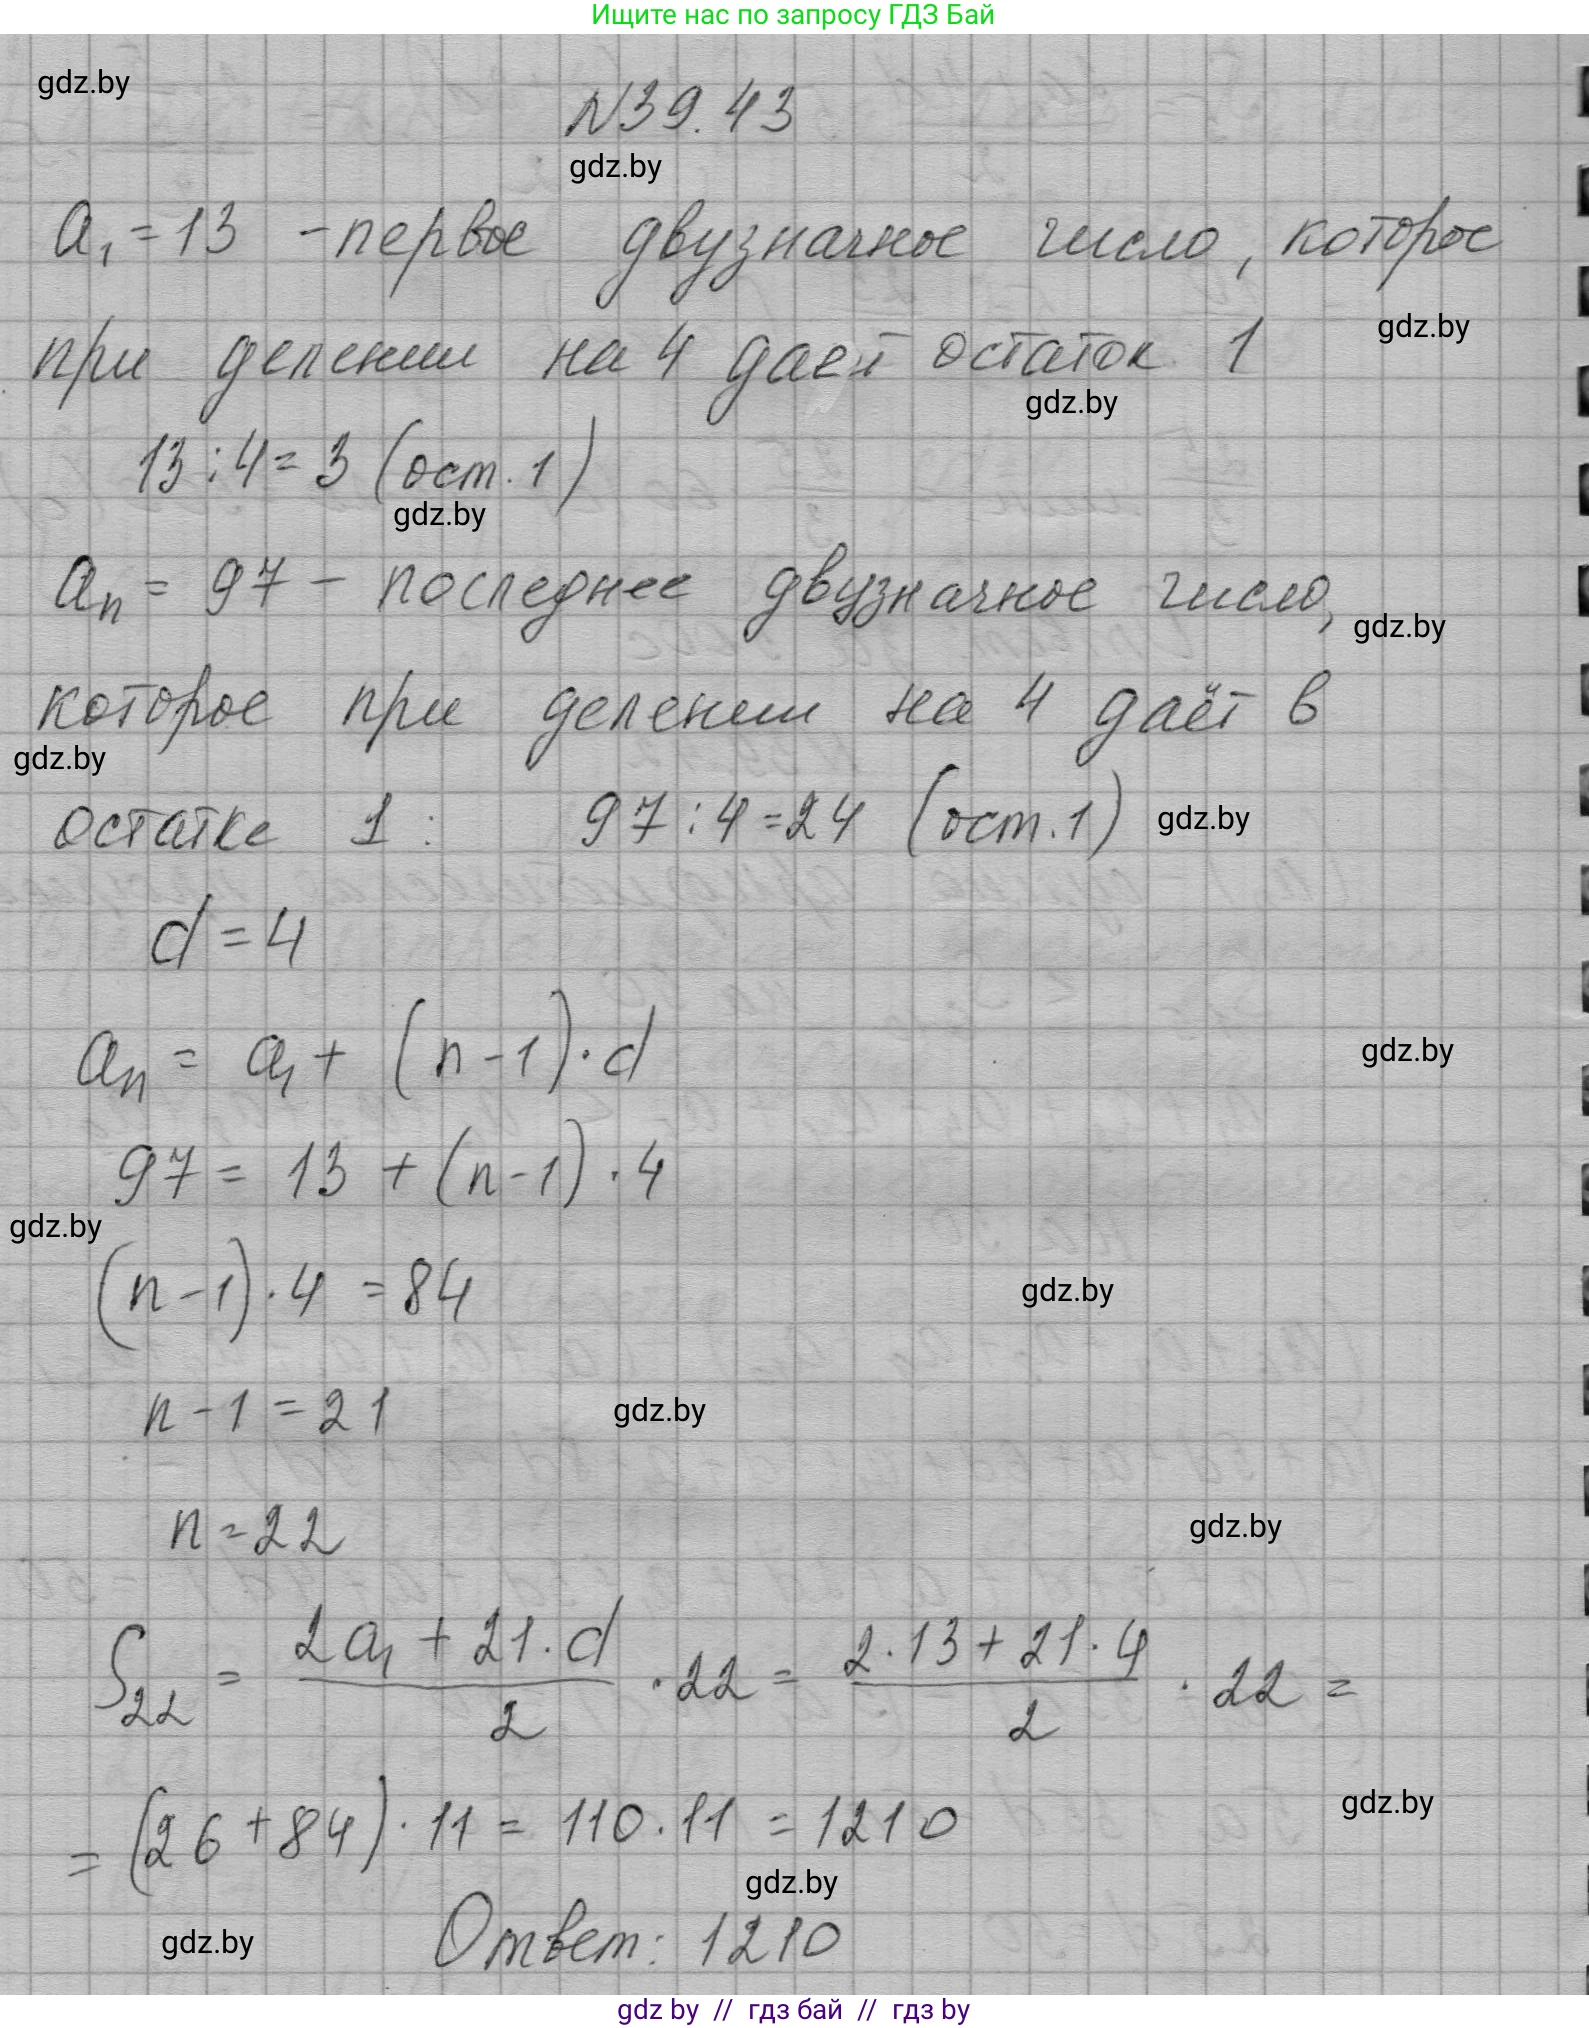 Ищите нас по запросу ГДЗ Бай
gdz.by
N39.43
gdz.by
a₁ = 13 - первое двузначное число, которое
gdz.by
при делении на 4 дает остаток 1
gdz.by
13 : 4 = 3 (ост. 1)
gdz.by
aₙ = 97 - последнее двузначное число,
gdz.by
которое при делении на 4 даёт в
gdz.by
остатке 1 : 97 : 4 = 24 (ост. 1)
gdz.by
d = 4
aₙ = a₁ + (n - 1) · d
gdz.by
97 = 13 + (n - 1) · 4
gdz.by
(n - 1) · 4 = 84
gdz.by
n - 1 = 21
gdz.by
n = 22
gdz.by
S₂₂ = (2a₁ + 21 · d)/2 · 22 = (2 · 13 + 21 · 4)/2 · 22 =
= (26 + 84) · 11 = 110 · 11 = 1210
gdz.by
gdz.by
Ответ: 1210
gdz.by
gdz by // гдз бай // гдз by